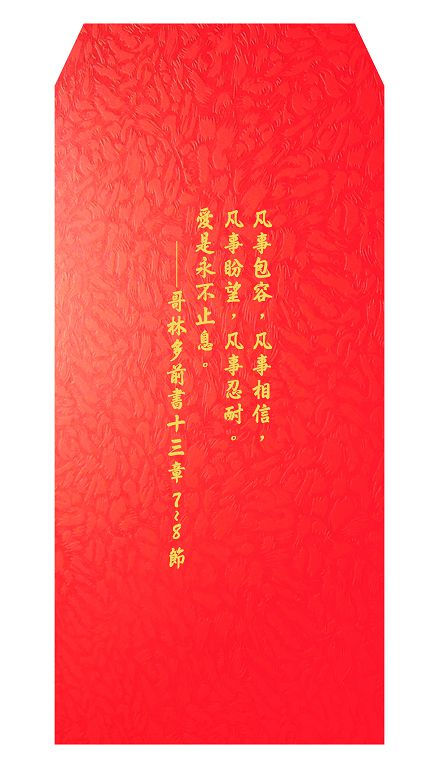 凡事包容，凡事相信，
凡事盼望，凡事忍耐。
愛是永不止息。
——哥林多前書十三章7~8節